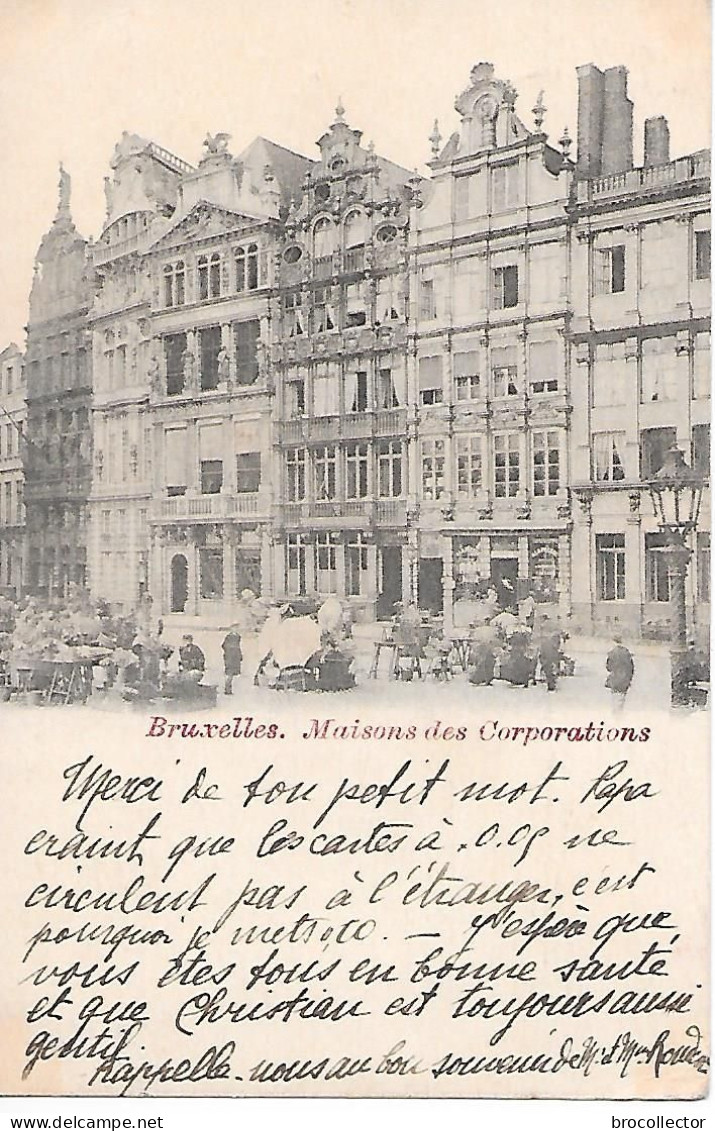 Bruxelles. Maisons des Corporations
Merci de ton petit mot. Papa
craint que les cartes à 0.05 ne
circulent pas à l'étranger, c'est
pourquoi je mets 0,10. — J'espère que
vous êtes tous en bonne santé
et que Christian est toujours aussi
gentil.
Rappelle-nous au bon souvenir de Mr et Mme
delcampe.net
brocollector